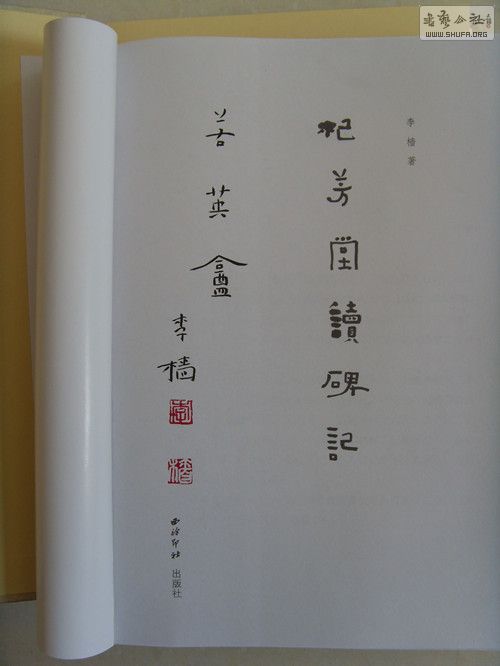 書藝公社
WWW.SHUFA.ORG
李樯 著
杞芳堂讀碑記
英盦
李檣
西泠印社 出版社